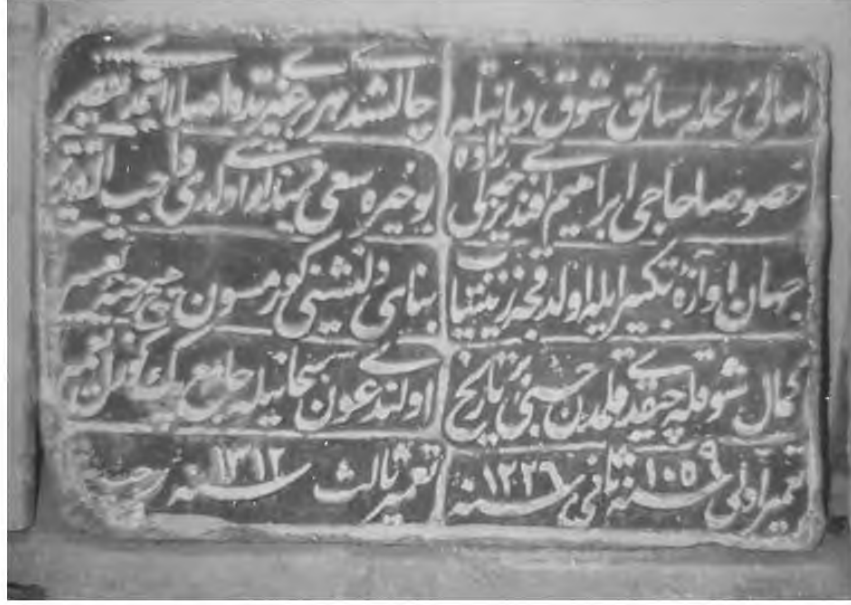 اهالئ محله سائق شوق دیانتیله چالشدی هر بری غیرتده اصلا ایتمدی تقصیر
خصوصا حاجی ابراهیم افندی زاده بو خیره سعی اولدی واجب التقدیر
جهان آوازۀ تکبیر ایله اولدقجه زینتیاب بنای دلنشینی کورمسون هیچ رخنۀ تغییر
کمال شوقله چیقدی قلمدن حسنی بر تاریخ اولندی عون سبحانیله جامع پك کوزل تعمیر
تعمیر اولی سنه ١٠٥٩ ثانی سنه ١٢٢٦ تعمیر ثالث سنه ١٣١٢ رجب